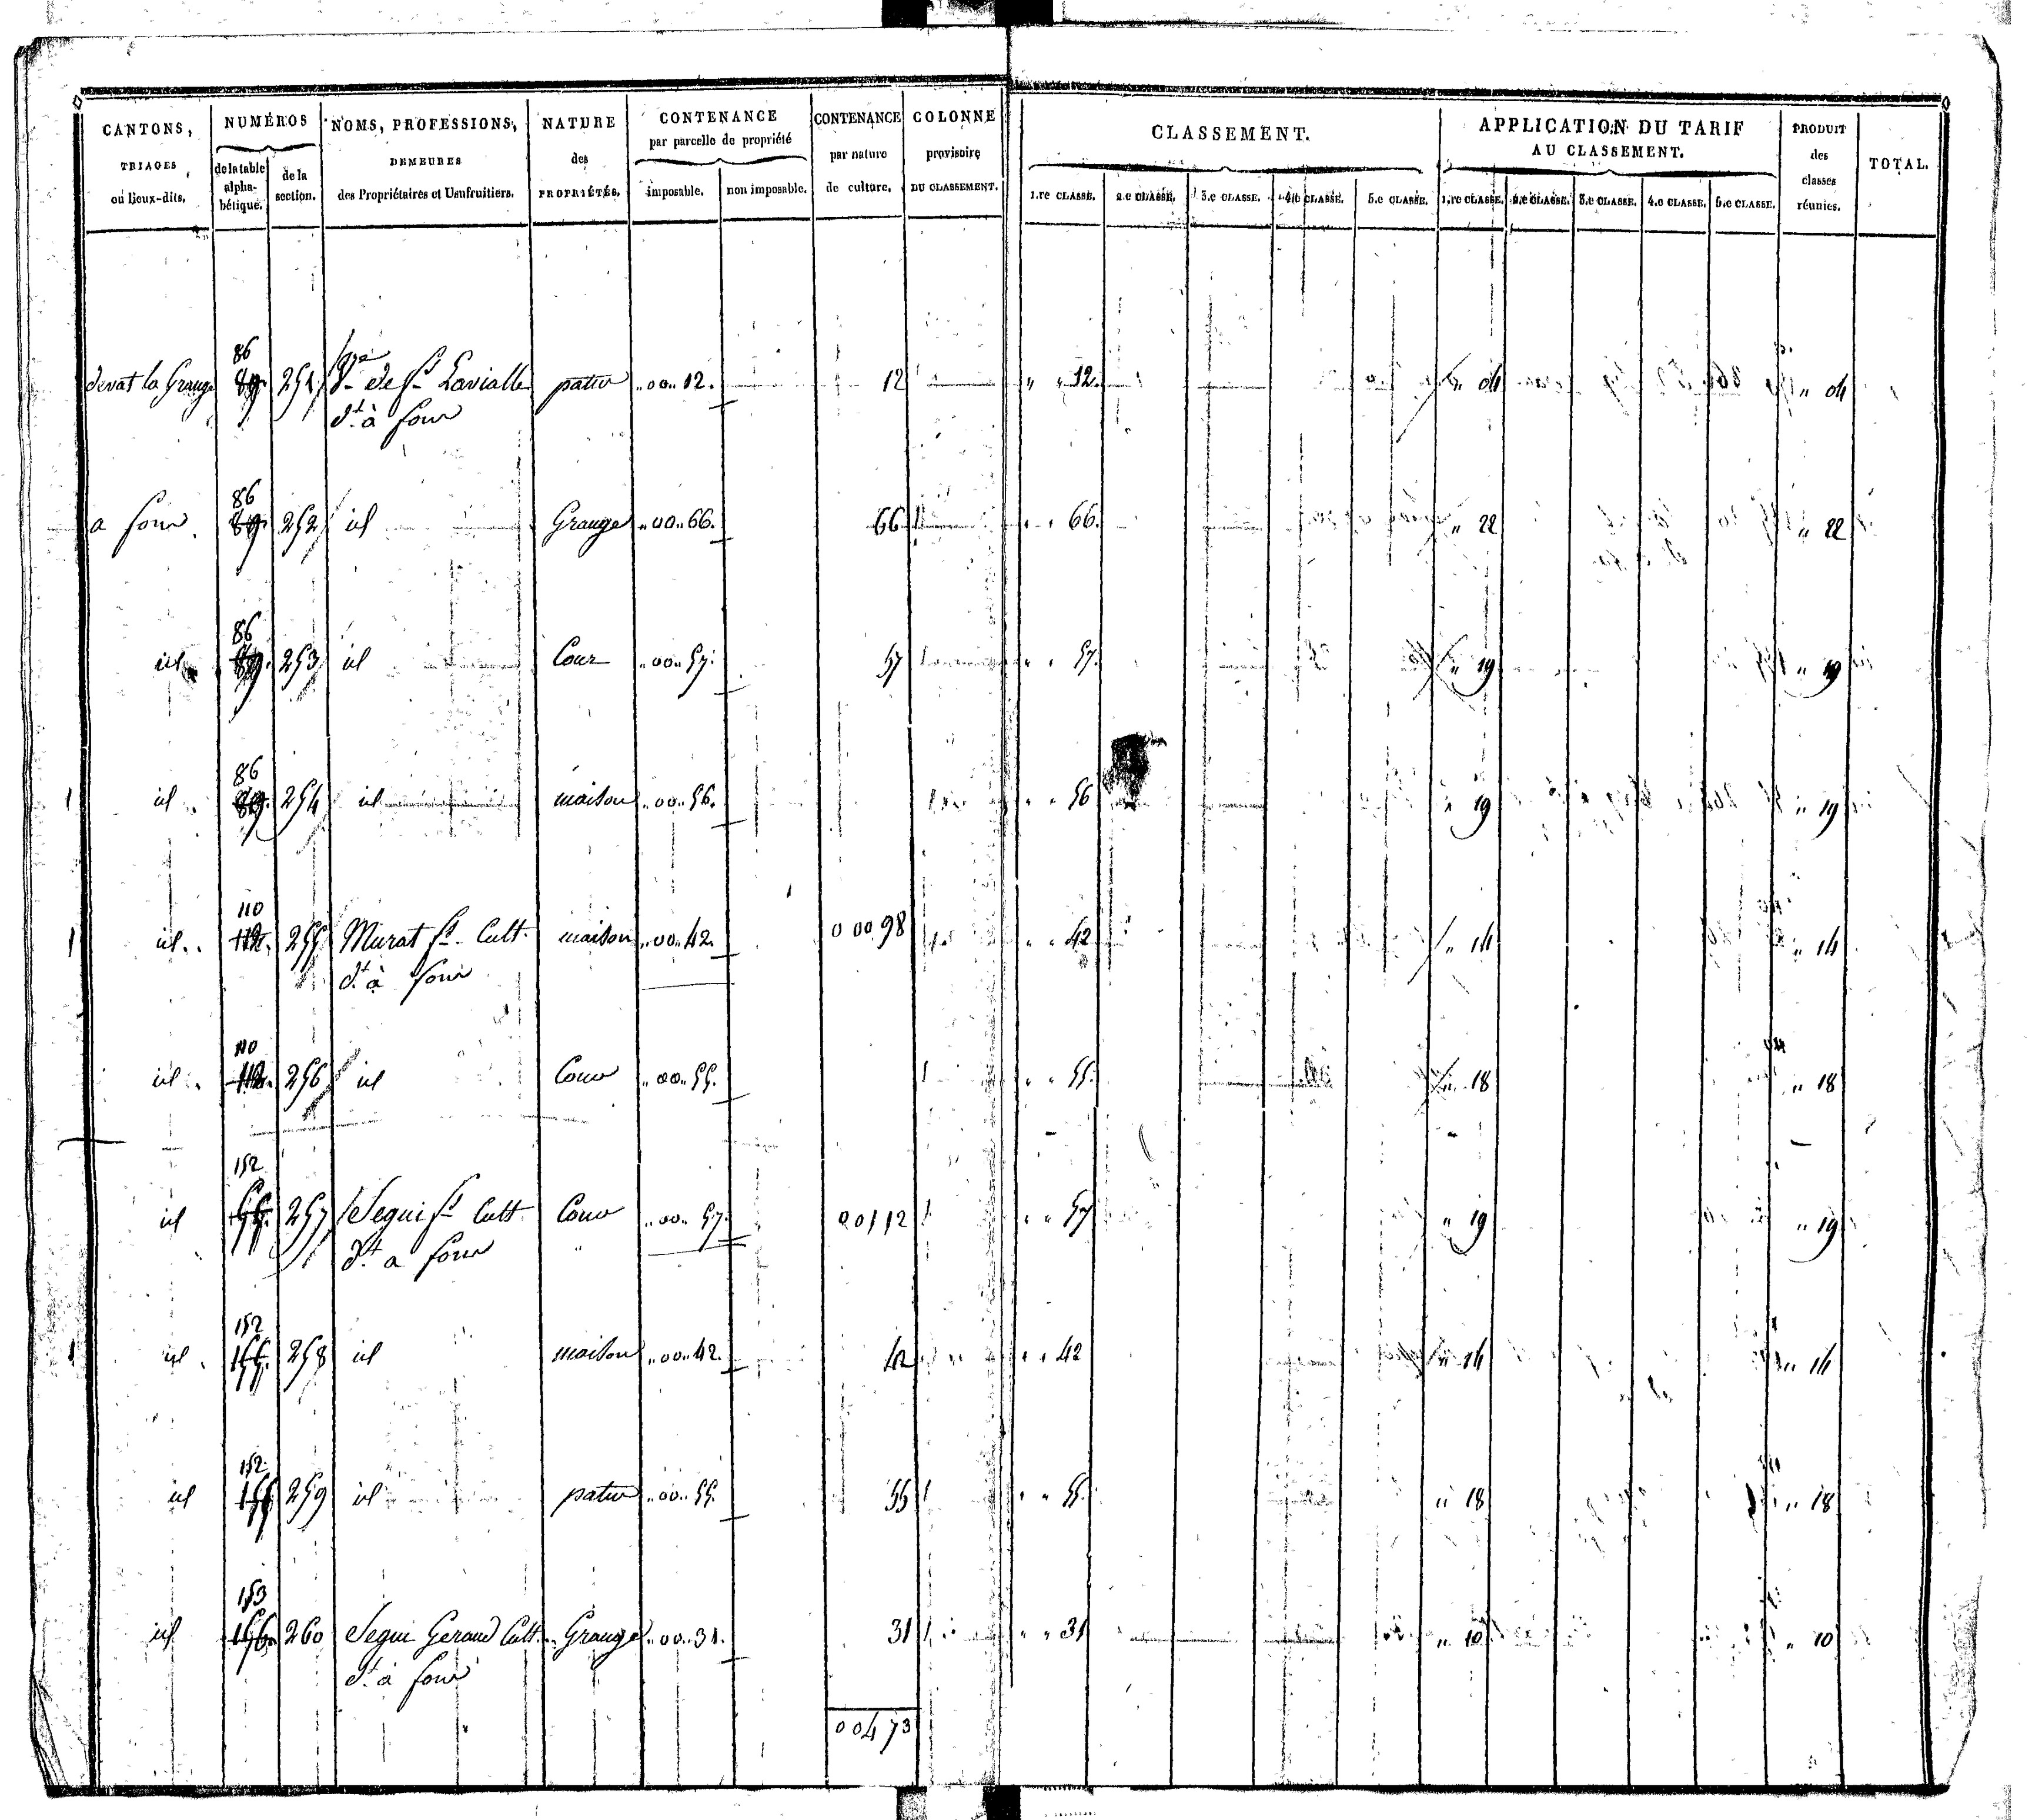 CANTONS, TRIAGES ou lieux-dits.
NUMÉROS
de la table alphabétique.
de la section.
NOMS, PROFESSIONS, DEMEURES des Propriétaires et Usufruitiers.
NATURE des PROPRIÉTÉS.
CONTENANCE par parcelle de propriété
imposable.
non imposable.
CONTENANCE par nature de culture.
COLONNE provisoire DU CLASSEMENT.
CLASSEMENT.
1.re CLASSE. 2.e CLASSE. 3.e CLASSE. 4.e CLASSE. 5.e CLASSE.
APPLICATION DU TARIF AU CLASSEMENT.
1.re CLASSE. 2.e CLASSE. 3.e CLASSE. 4.e CLASSE. 5.e CLASSE.
PRODUIT des classes réunies.
TOTAL.
86
devat la Grange 89. 251 Lavialle patur „ 00 „ 12. 12 „ „ 12. „ 04 „ 04
dt à four
86
a four 89. 252 id Grange „ 00 „ 66. 66 „ „ 66. „ 22 „ 22
86
id 89. 253 id Cour „ 00 „ 57. 57 „ „ 57. „ 19 „ 19
86
1 id 89. 254 id maison „ 00 „ 56. „ „ 56 „ 19 „ 19
110
1 id 112. 255 Murat Cult. maison „ 00 „ 42. 0 00 98 „ „ 42 „ 14 „ 14
dt à four
110
id 112. 256 id Cour „ 00 „ 55. „ „ 55. „ 18 „ 18
152
id 257 Segui Cult. Cour „ 00 „ 57. 0 01 12 „ „ 57 „ 19 „ 19
dt a four
152
1 id 155. 258 id maison „ 00 „ 42. 42 „ „ 42 „ 14 „ 14
152
id 155 259 id patur „ 00 „ 55. 55 „ „ 55. „ 18 „ 18
153
id 156. 260 Segui Geraud Cult. Grange „ 00 „ 31. 31 „ „ 31 „ 10 „ 10
dt à four
0 04 73